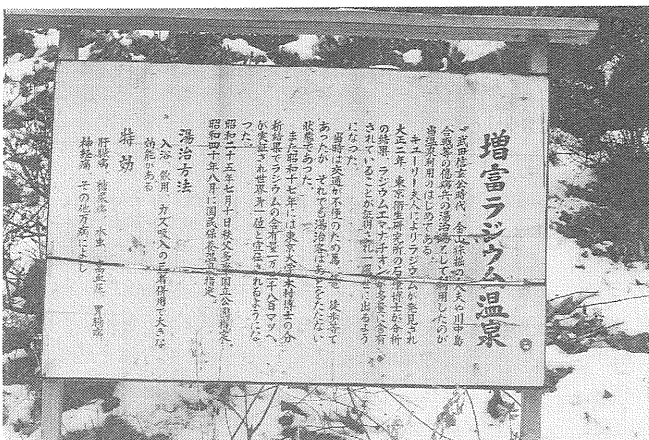 増富ラジウム温泉
武田信玄公時代、金山採掘の人夫や川中島
合戦等の傷病兵の湯治場として利用したのが
当温泉利用のはじめである。
キューリー夫人によりラジウムが発見され
大正二年、東京衛生研究所の石津博士が分析
の結果、ラジウムエマナチオンが多量に含有
されていることが証明され一躍世に出るよう
になった。
当時は交通が不便のため馬、徒歩等で
あったが、それでも湯治客はあとをたたない
状態であった。
また昭和十七年には東京大学木村博士の分
析結果でラジウムの含有量一万二千八百マッヘ
が実証され世界第一位と宣伝されるようにな
った。
昭和二十五年七月十日秩父多摩国立公園指定。
昭和四十年八月に国民保養温泉指定。
湯治方法
入浴、飲用、ガス吸入の三者併用で大きな
効能がある
特効
肝臓病 糖尿病 水虫 高血圧 胃腸病
神経病 その他万病によし